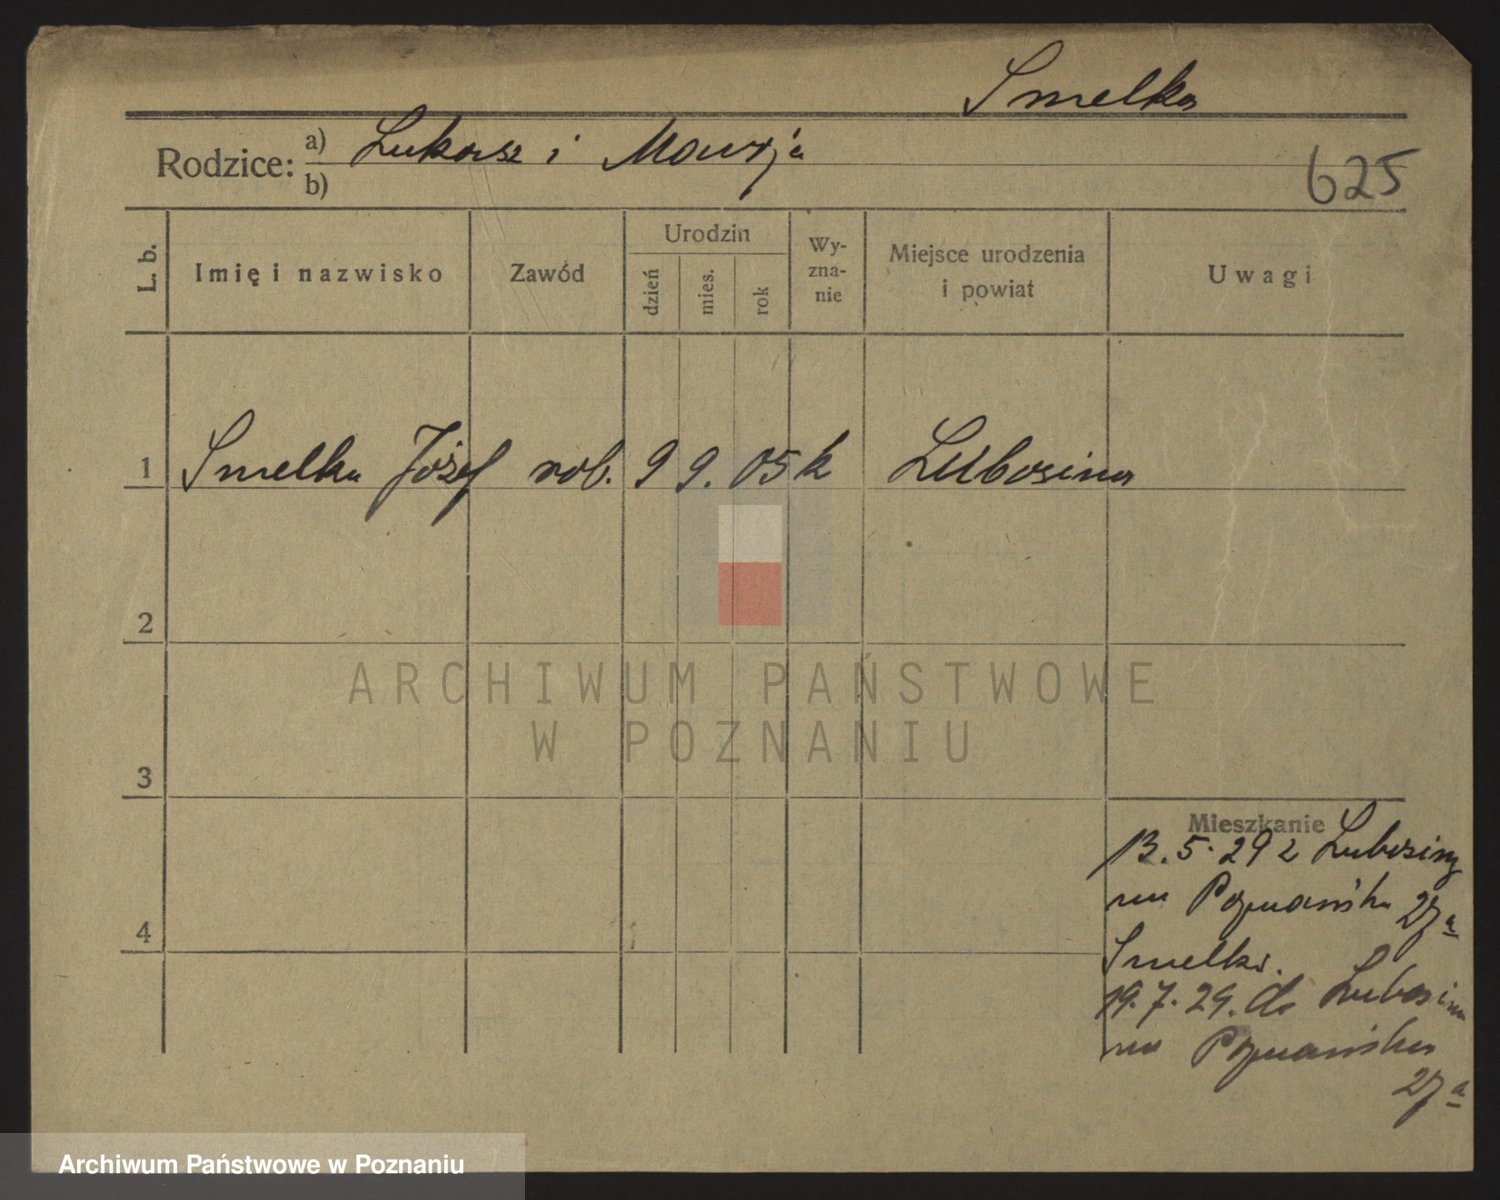 Smelka
Rodzice: a) Łukasz i Marja
b)
625
L. b. Imię i nazwisko Zawód Urodzin dzień mies. rok Wy-zna-nie Miejsce urodzenia i powiat Uwagi
1 Smelka Józef rob. 9 9. 05 k Lubosina
2
3
4
Mieszkanie
13. 5. 29 z Lubosiny
na Poznańska 27a
Smelka.
19. 7. 29. do Lubosina
na Poznańska
27a
ARCHIWUM PAŃSTWOWE
W POZNANIU
Archiwum Państwowe w Poznaniu